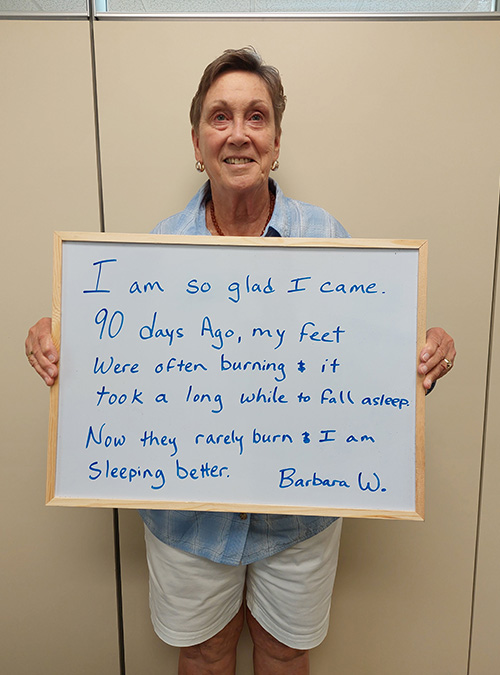 I am so glad I came.
90 days Ago, my feet
Were often burning & it
took a long while to fall asleep.
Now they rarely burn & I am
Sleeping better. Barbara W.